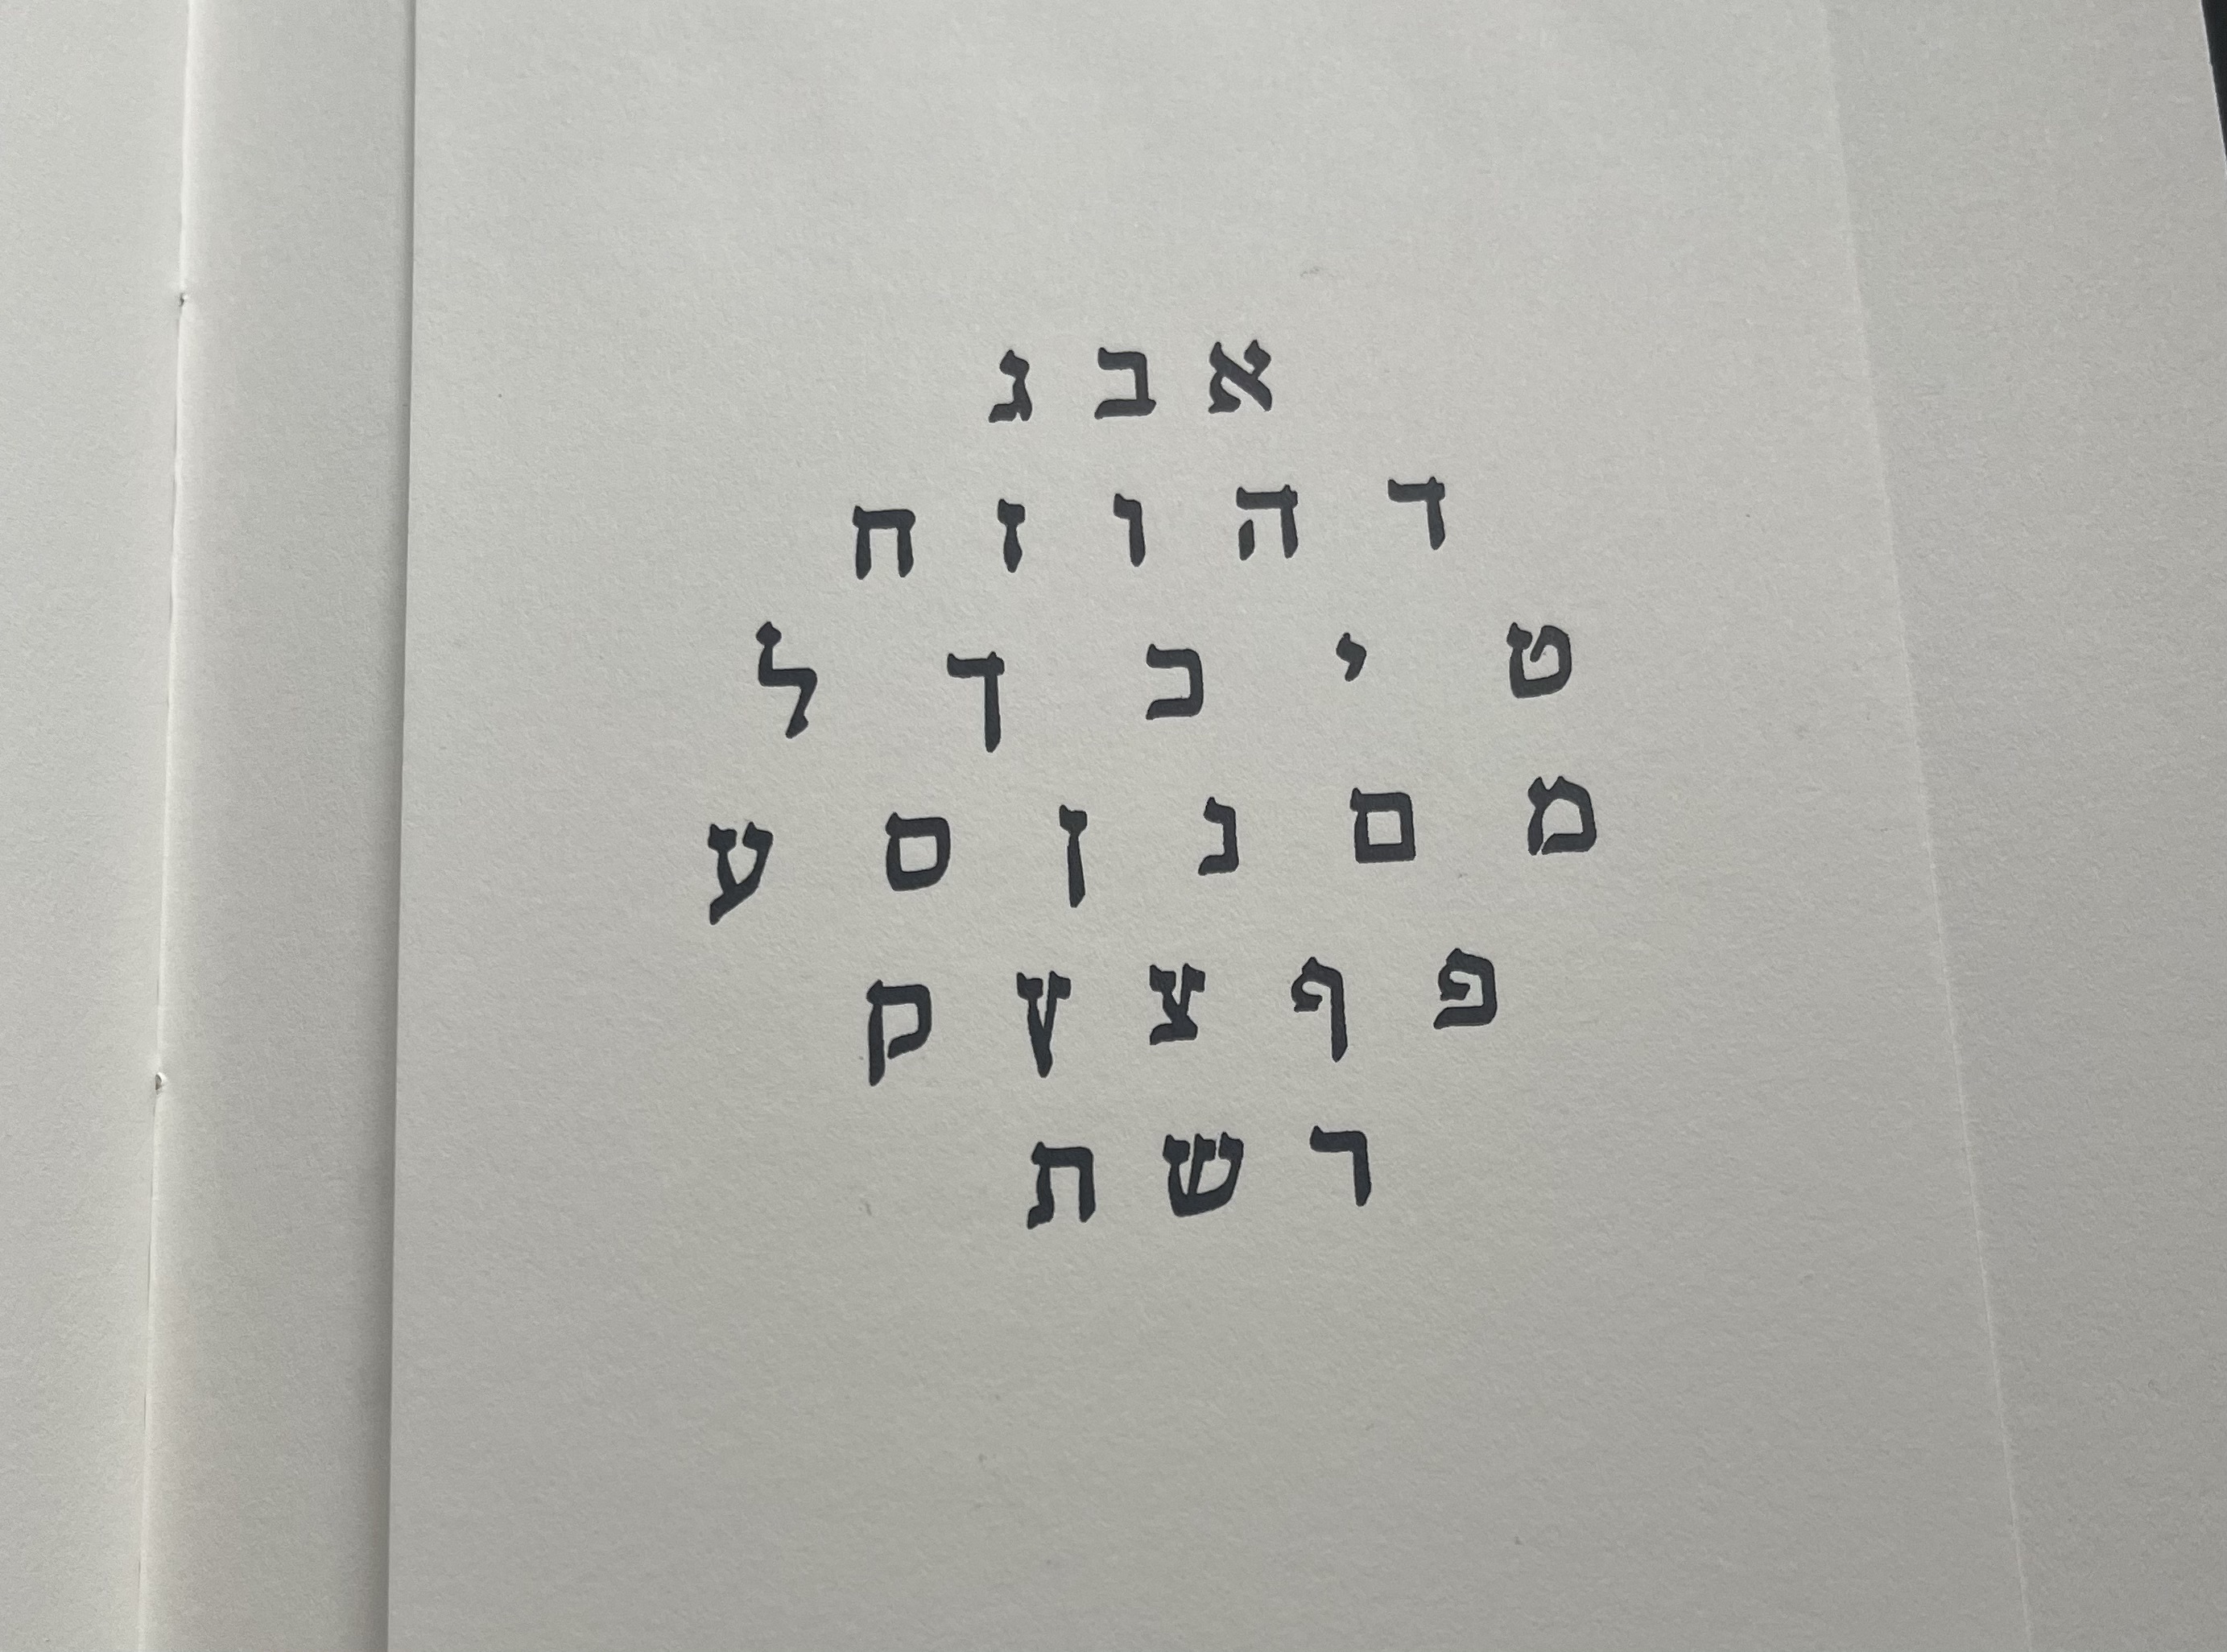 א ב ג
ד ה ו ז ח
ט י כ ך ל
מ ם נ ן ס ע
פ ף צ ץ ק
ר ש ת